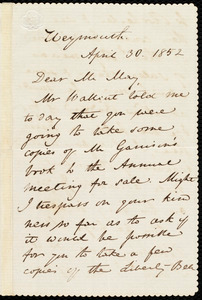 Weymouth.
April 30. 1852
Dear Mr May,
Mr Wallcut told me
to day that you were
going to take some
copies of Mr Garrison's
book to the Annual
meeting for sale. Might
I trespass on your kind
ness so far as to ask if
it would be possible
for you to take a few
copies of the Liberty Bell